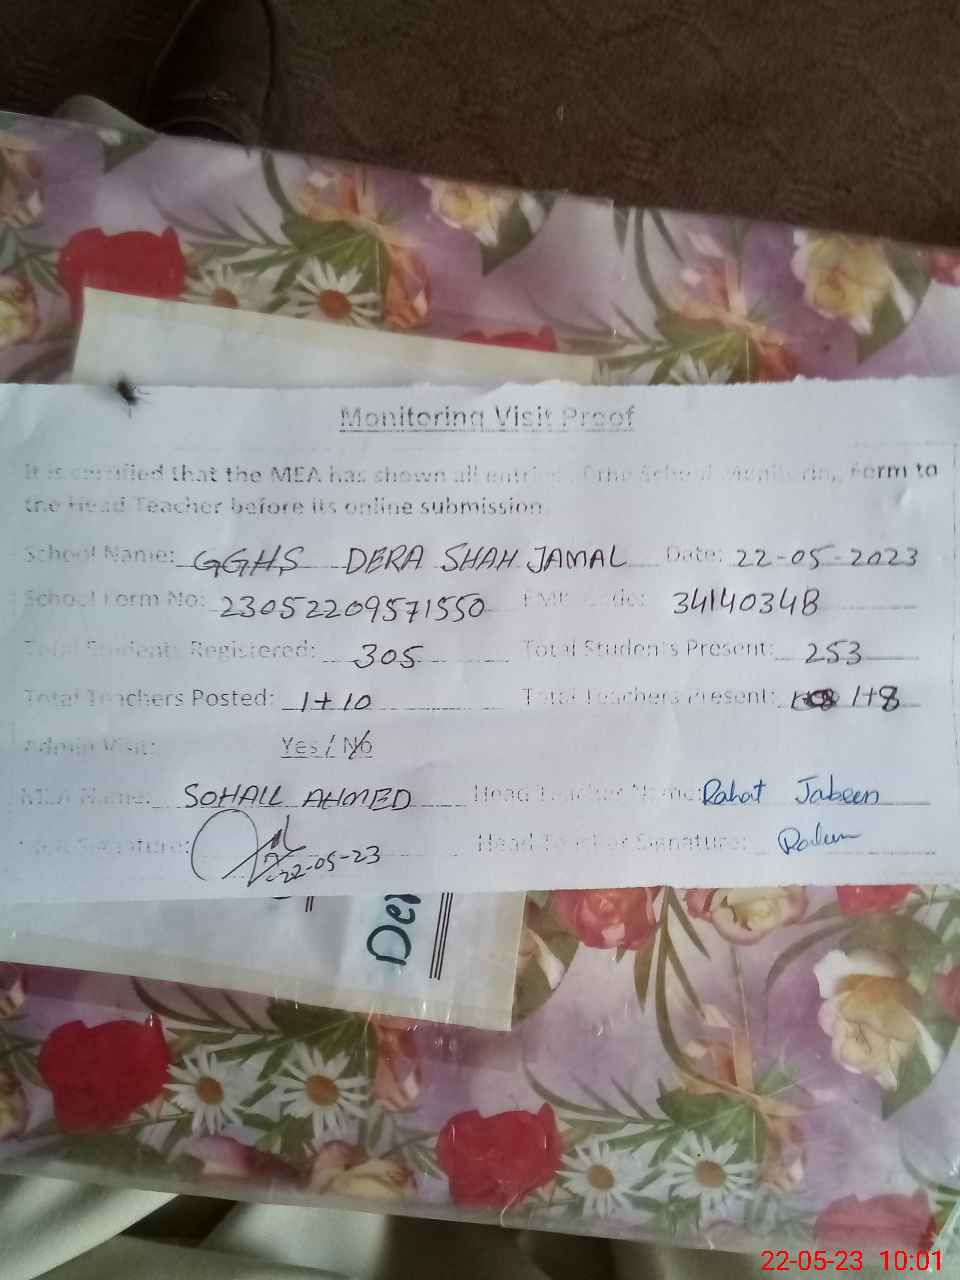 Monitoring Visit Proof
It is certified that the MEA has shown all entries of the School Monitoring Form to
the Head Teacher before its online submission.
School Name: GGHS DERA SHAH JAMAL Date: 22-05-2023
School Form No: 23052209571550 EMIS Code: 34140348
Total Students Registered: 305 Total Students Present: 253
Total Teachers Posted: 1+10 Total Teachers Present: 1+8
Admin Visit: Yes / No
MEA Name: SOHAIL AHMED Head Teacher Name: Rahat Jabeen
MEA Signature: 22-05-23 Head Teacher Signature:
Der
22-05-23 10:01